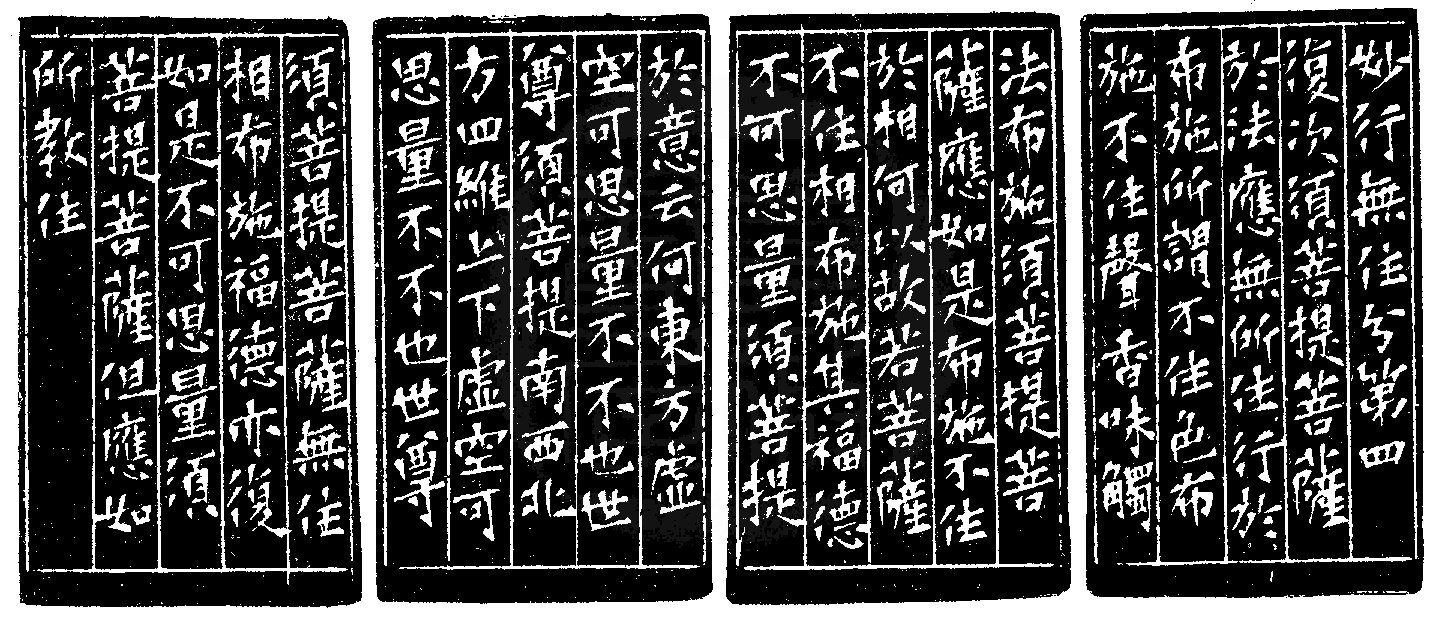 妙行無住分第四
復次須菩提菩薩
於法應無所住行於
布施所謂不住色布
施不住聲香味觸
法布施須菩提菩
薩應如是布施不住
於相何以故若菩薩
不住相布施其福德
不可思量須菩提
於意云何東方虛
空可思量不不也世
尊須菩提南西北
方四維上下虛空可
思量不不也世尊
須菩提菩薩無住
相布施福德亦復
如是不可思量須
菩提菩薩但應如
所教住